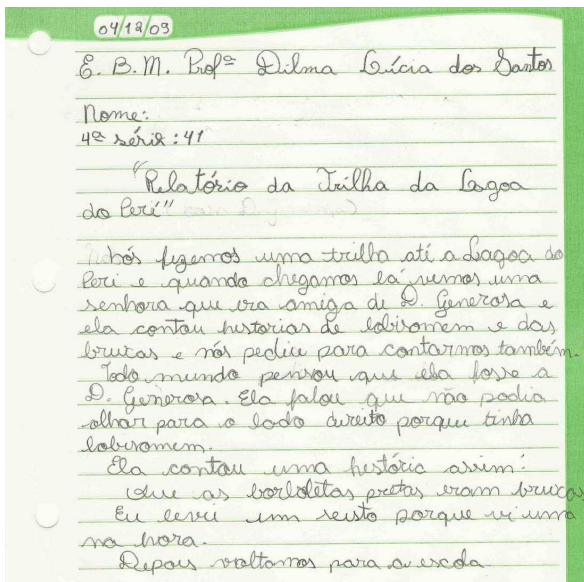 04/12/09
E. B. M. Profª Dilma Lúcia dos Santos
Nome:
4ª série: 41
"Relatório da Trilha da Lagoa
do Peri"
Nós fizemos uma trilha até a Lagoa do
Peri e quando chegamos lá vemos uma
senhora que era amiga de D. Generosa e
ela contou historias de lobisomem e das
bruxas e nós pediu para contarmos também.
Todo mundo pensou que ela fosse a
D. Generosa. Ela falou que não podia
olhar para o lado direito porque tinha
lobisomem.
Ela contou uma história assim:
Que as borboletas pretas eram bruxas
Eu levei um susto porque vi uma
na hora.
Depois voltamos para a escola.